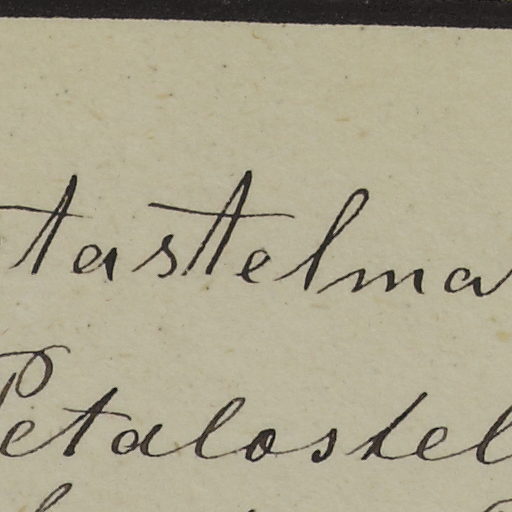 tastelma
Petalostel